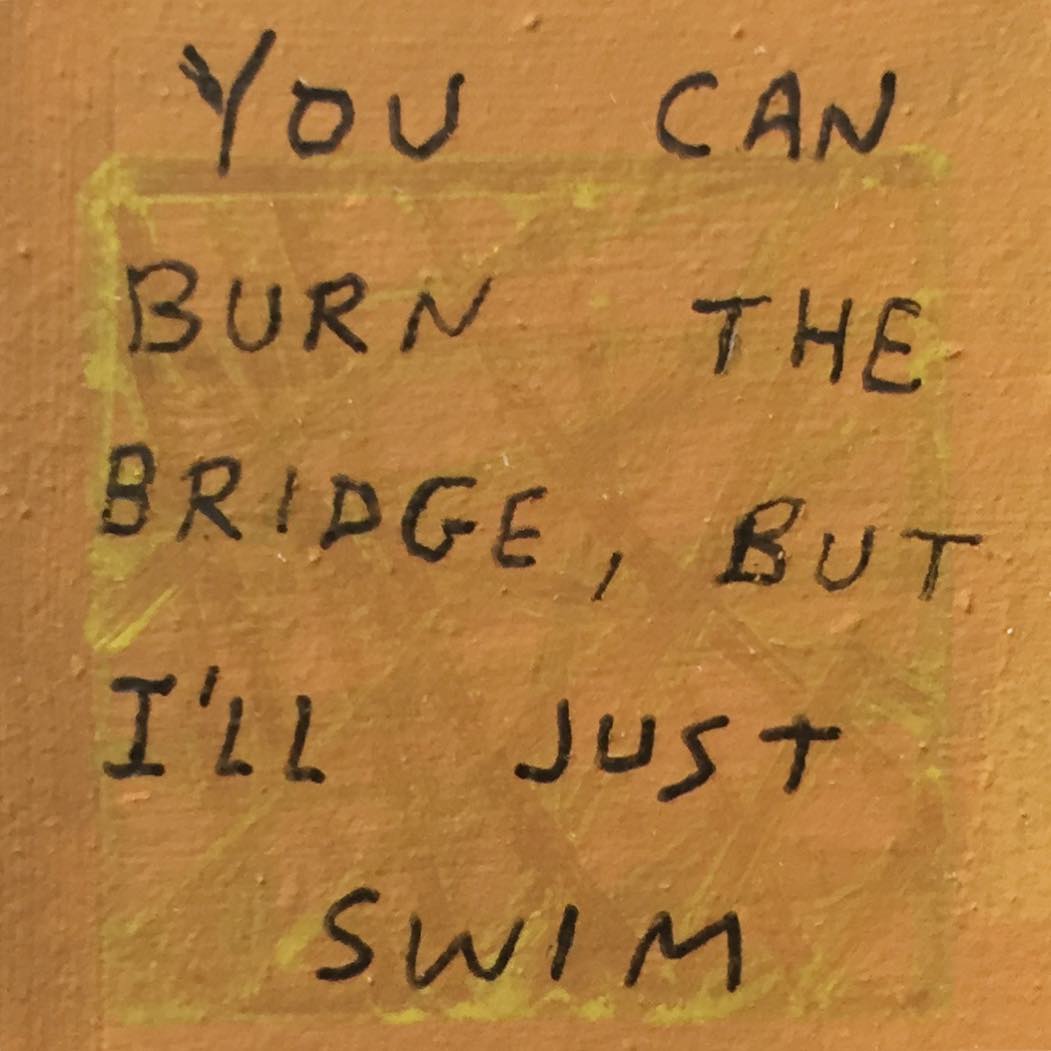 YOU CAN
BURN THE
BRIDGE, BUT
I'LL JUST
SWIM